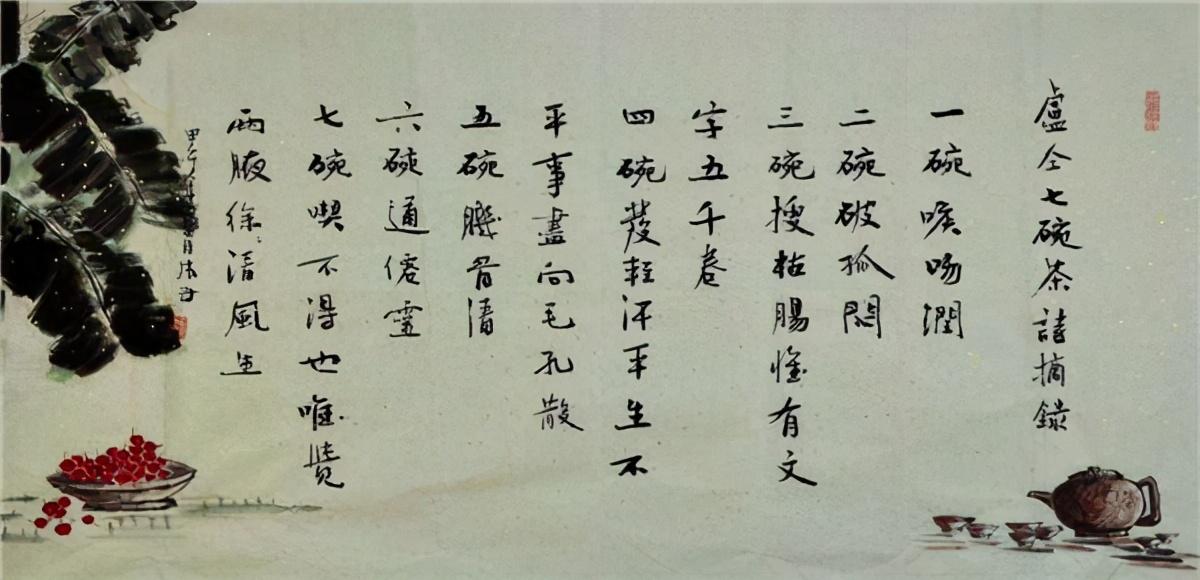 盧仝七碗茶詩摘錄
一碗喉吻潤
二碗破孤悶
三碗搜枯腸惟有文
字五千卷
四碗發輕汗平生不
平事盡向毛孔散
五碗肌骨清
六碗通僊靈
七碗喫不得也唯覺
兩腋徐〻清風生
甲午